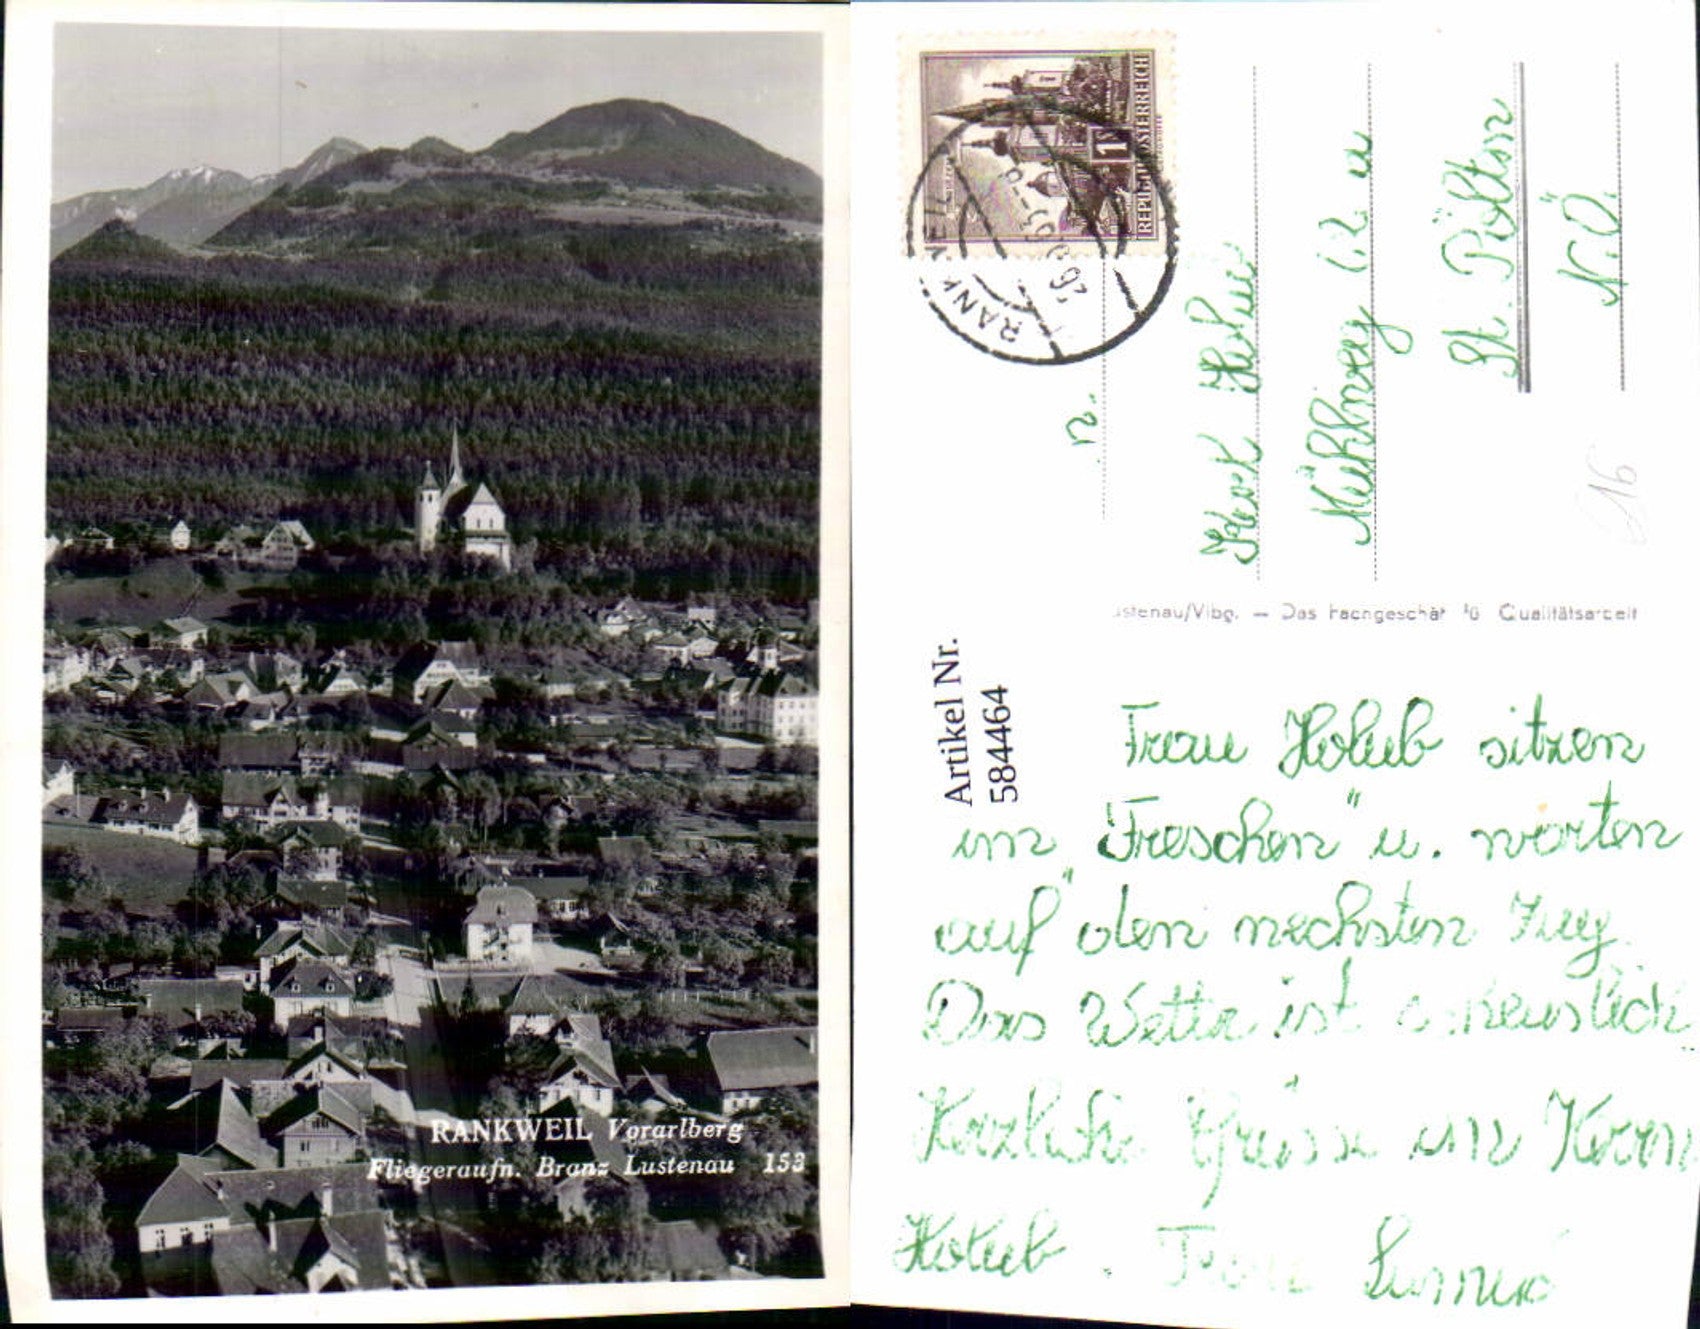 RANKWEIL Vorarlberg
Fliegeraufn. Branz Lustenau 153
REPUBLIK ÖSTERREICH
1 S
RANKWEIL
26.9.63-8
n.
Holub
St. Pölten
N.Ö.
16
ustenau/Vlbg. — Das Fachgeschäft für Qualitätsarbeit
Artikel Nr.
584464
Frau Holub sitzen
im "Freschen" u. warten
auf den nechsten Zug.
Das Wetter ist
Herzliche Grüsse an Herrn
Holub. Frau